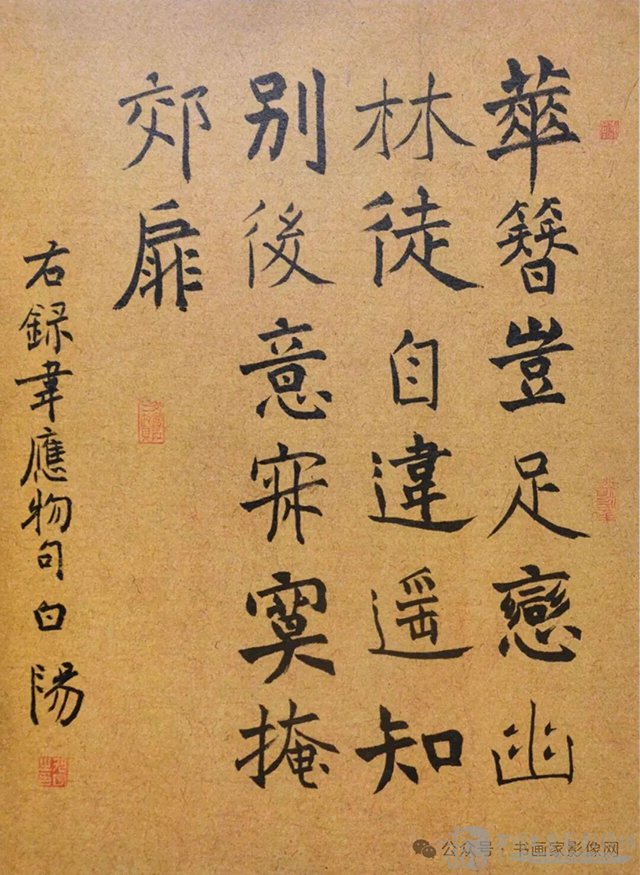 華簪豈足戀幽
林徒自違遥知
别後意寂寞掩
郊扉
右録韋應物句白陽
公众号 · 书画家影像网